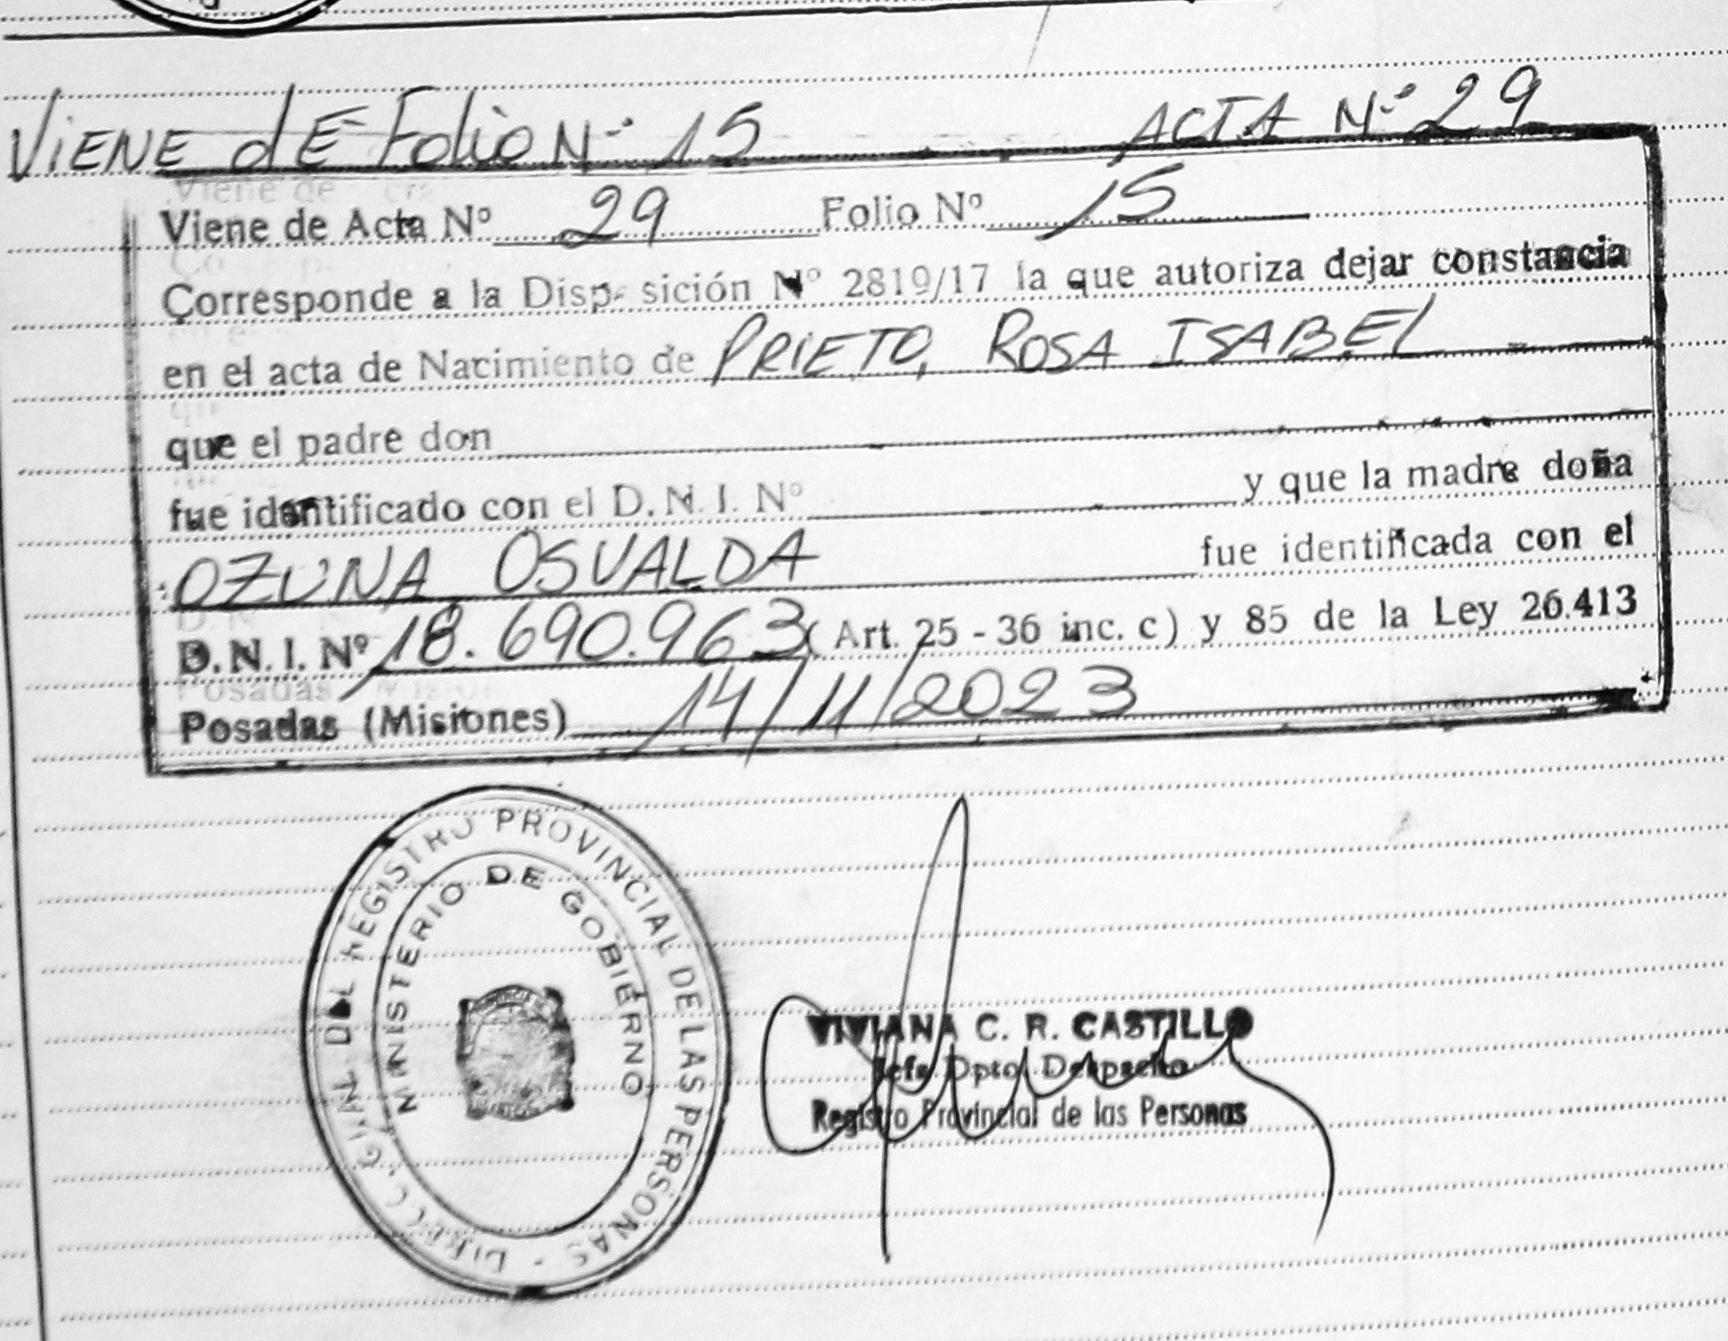 ViENE dE Folio N° 15 ACTA N° 29
Viene de Acta Nº 29 Folio Nº 15
Corresponde a la Disp sición Nº 2819/17 la que autoriza dejar constancia
en el acta de Nacimiento de PRIETO, ROSA ISABEL
que el padre don
fue identificado con el D. N. I. Nº y que la madre doña
OZUNA, OSVALDA fue identificada con el
D. N. I. Nº 18.690.963 ( Art. 25 - 36 inc. c ) y 85 de la Ley 26.413
Posadas (Misiones) 14/11/2023
DEL REGISTRO PROVINCIAL DE LAS PERSONAS
MINISTERIO DE GOBIERNO
VIVIANA C. R. CASTILLO
Jefe Dpto. Despacho
Registro Provincial de las Personas